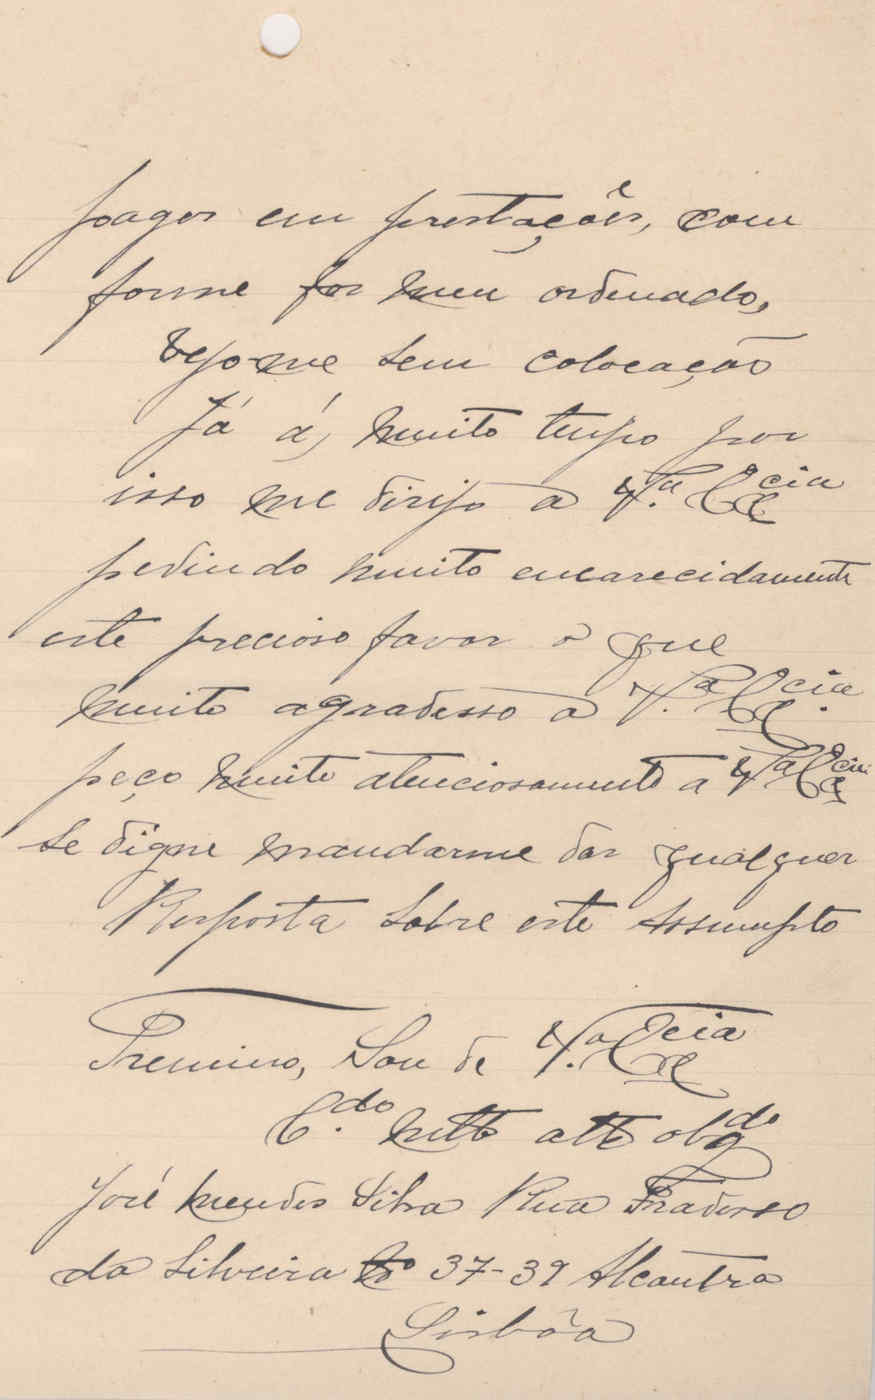 pagos em prestações, com
forme for meu ordenado,
Vejo-me sem colocação
Já á, muito tempo por
isso me dirijo a V.ª Ex.cia
pedindo muito encarecidamente
este precioso favor o que
muito agradesso a V.ª Ex.cia
peço muito atenciosamente a V.ª Ex.cia
se digne mandarme dar qualquer
Resposta sobre este Assumpto
Tremino, Sou de V.ª Ex.cia
C.do Mtto atto obgdo
José Mendes Silva Rua Pradesso
da Silveira No 37-39 Alcantra
Lisbôa